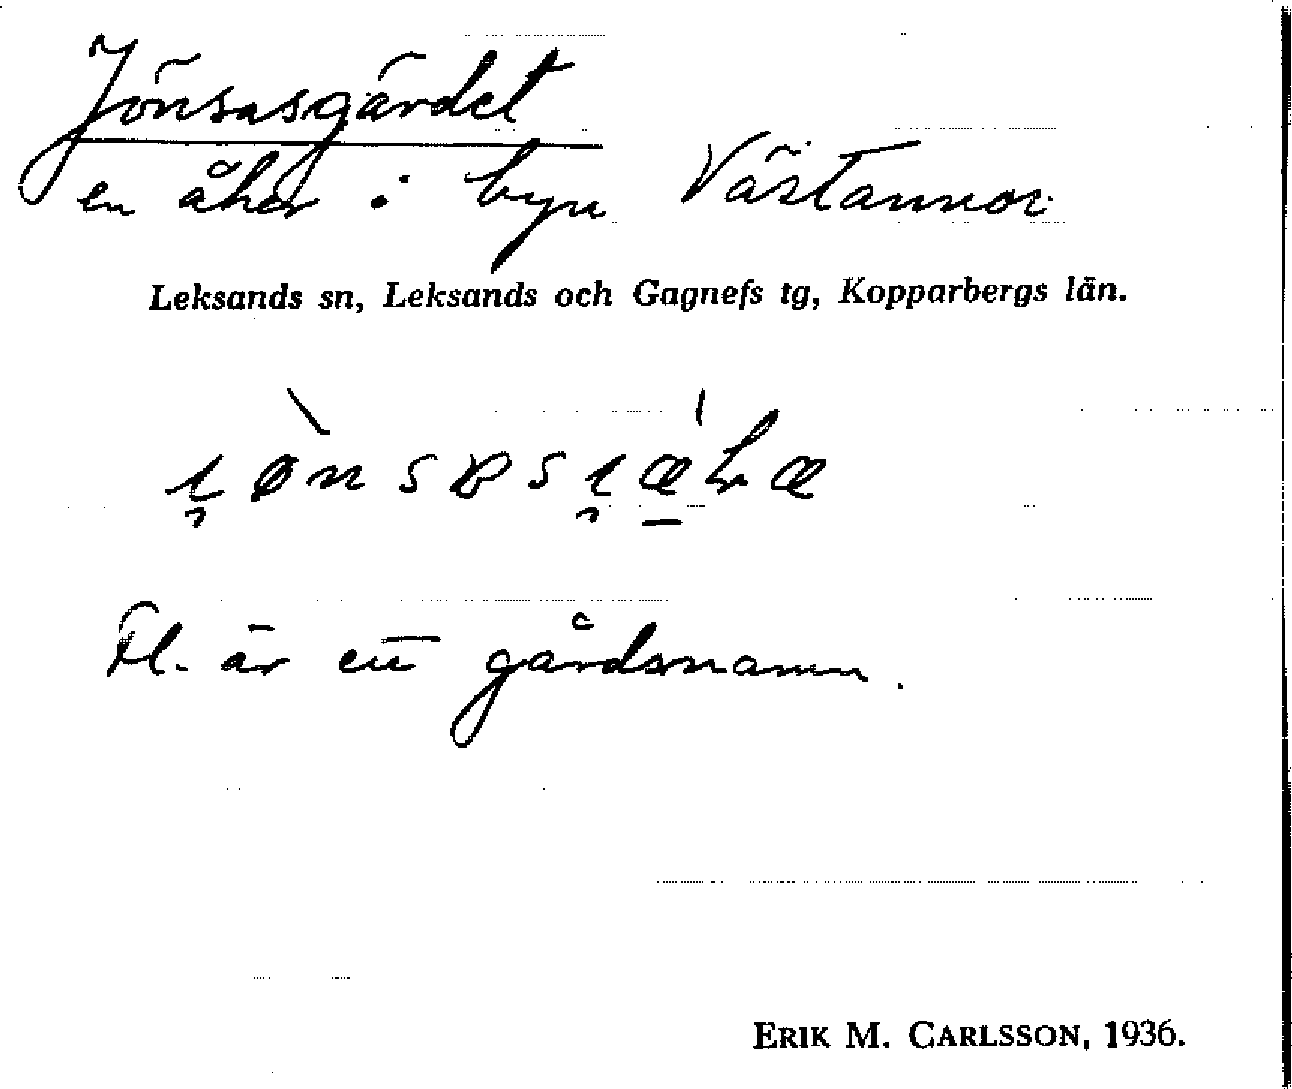 Jönsasgärdet
en åker i byn Västannor.
Leksands sn, Leksands och Gagnefs tg, Kopparbergs län.
Fl. är ett gårdsnamn.
ERIK M. CARLSSON, 1936.